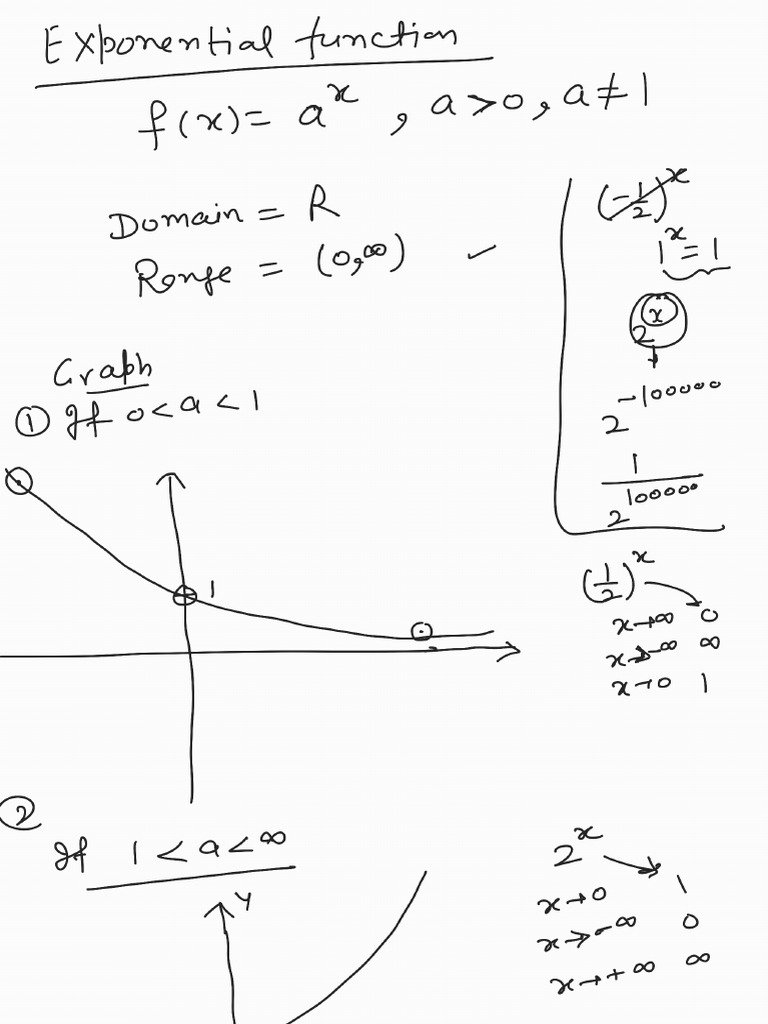 Exponential function
f(x) = a^x , a>0, a≠1
Domain = R
Range = (0,∞) ✓
(-1/2)^x
1^x = 1
2^x
2^-100000
1/2^100000
Graph
① If 0<a<1
1
(1/2)^x
x→∞ 0
x→-∞ ∞
x→0 1
②
If 1<a<∞
y
2^x
x→0 1
x→-∞ 0
x→+∞ ∞